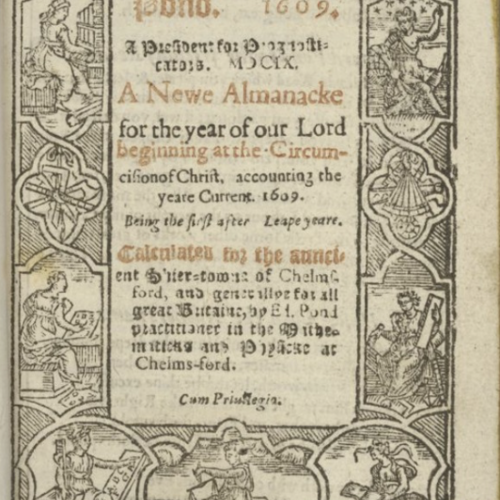 Pond. 1609.
A President for Prognosti-
cators. MDCIX.
A Newe Almanacke
for the year of our Lord
beginning at the Circum-
cision of Christ, accounting the
yeare Current. 1609.
Being the first after Leape yeare.
Calculated for the aunci-
ent Shier-towne of Chelms-
ford, and generallye for all
great Britaine, by Ed. Pond
practitioner in the Mathe-
maticks and Physicke at
Chelms-ford.
Cum Priuilegio.